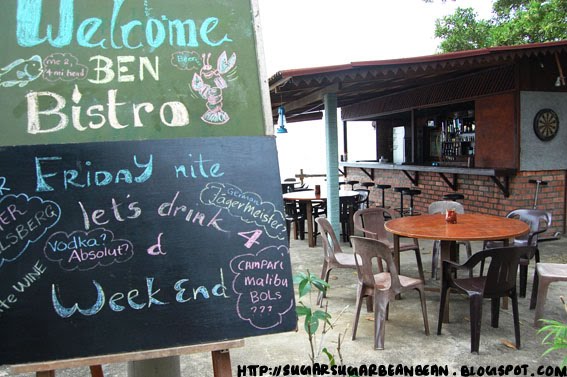 Welcome
me &
4 mi head
BEN
Ben
Bistro
FRIDAY nite
German
Jägermeister
LSBERG
let's drink 4
Vodka?
Absolut?
d
WINE
Week End
CAMPARI
malibu
BOLS
???
HTTP://SUGARSUGARBEANBEAN.BLOGSPOT.COM